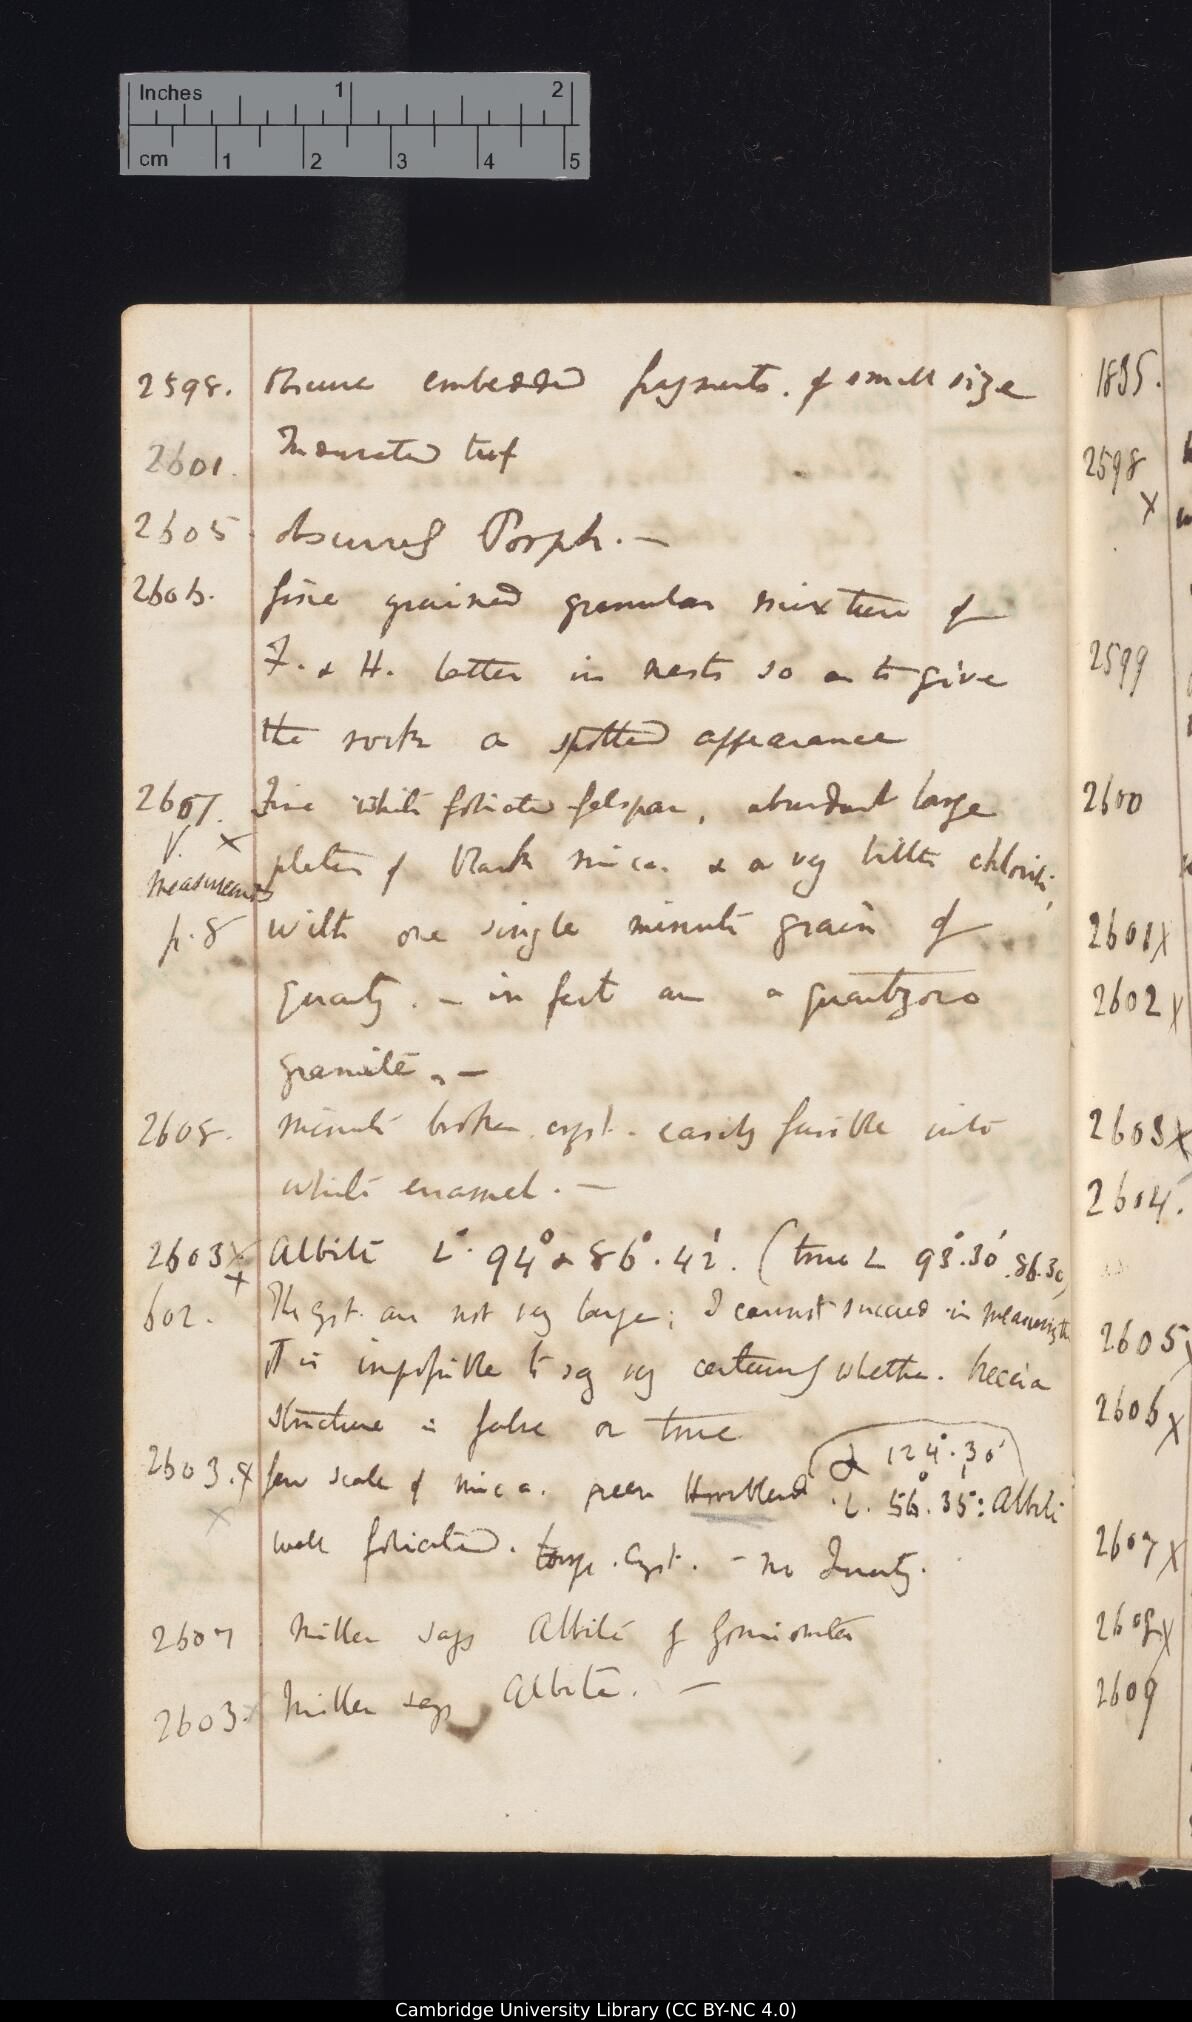 Inches 1 2
cm 1 2 3 4 5
2598. Obscure embedded fragments. of small size
2601. Indurated tuf
2605 obscurely Porph. —
2606. fine grained granular mixture of
F. & H. latter in nests so as to give
the rock a spotted appearance
2607. Fine white foliated felspar, abundant large
V. X plates of black mica. & a very little chlorite,
measurements
p. 8 with one single minute grain of
quartz. — in fact an a quartzoso
granite. —
2608. minute broken cryst. easily fusible into
white enamel. —
2603 X Albite L° 94° & 86°. 42'. (true L 93°.30' .86.30)
602. The cryst. are not very large; I cannot succeed in measuring the
It is impossible to say very certainly whether. breccia
structure is false or true
2603. X few scale of mica. green Hornblend & 124°.30'
X L. 56°.35': Albite
well foliated. large. Cryst. — no Quartz.
2607 Miller says Albite by goniometer
2603. Miller says Albite. —
1835.
2598
X
2599
2600
2601 X
2602 X
2603 X
2604.
2605
2606 X
2607 X
2608 X
2609
Cambridge University Library (CC BY-NC 4.0)